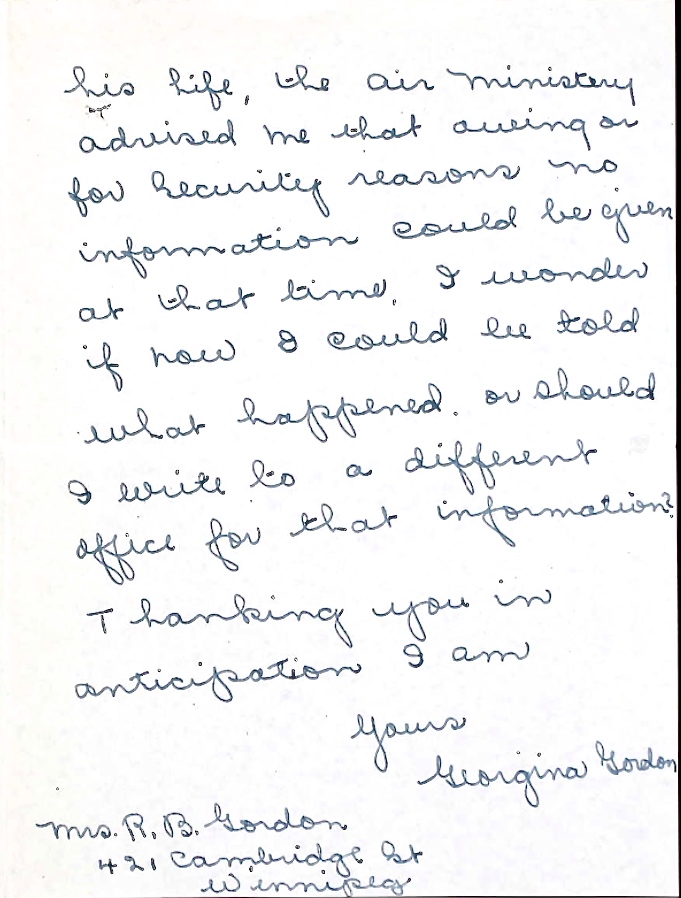 his life, the air ministery
advised me that oweing or
for security reasons no
information could be given
at that time, I wonder
if now I could be told
what happened. or should
I write to a different
office for that information?
Thanking you in
anticipation I am
Yours
Georgina Gordon
Mrs. R. B. Gordon
421 Cambridge St
Winnipeg